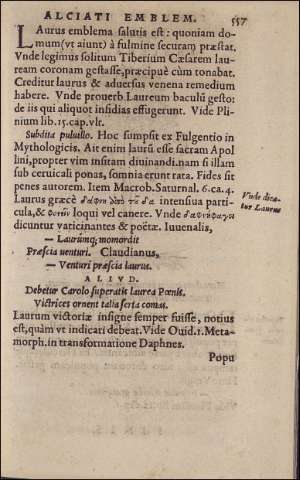 ALCIATI EMBLEM. 557
LAurus emblema salutis est: quoniam do-
mum (vt aiunt) à fulmine securam præstat.
Vnde legimus solitum Tiberium Cæsarem lau-
ream coronam gestasse, præcipuè cùm tonabat.
Creditur laurus & aduersus venena remedium
habere. Vnde prouerb Laureum baculū gesto:
de iis qui aliquot insidias effugerunt. Vide Pli-
nium lib.15.cap.vlt.
Subdita puluillo. Hoc sumpsit ex Fulgentio in
Mythologicis. Ait enim laurū esse sacram Apol
lini, propter vim insitam diuinandi. nam si illam
sub ceruicali ponas, somnia erunt rata. Fides sit
penes autorem. Item Macrob. Saturnal. 6. ca. 4.
Laurus græcè δαφνη ἀπὸ τοῦ δα intensiua parti-
cula, & φωνεῖν loqui vel canere. Vnde δαφνηφαγοι
dicuntur vaticinantes & poëtæ. Iuuenalis,
— Laurúmq; momordit
Præscia venturi. Claudianus,
— Venturi præscia laurus.
ALIVD.
Debetur Carolo superatis laurea Pœnis.
Victrices ornent talia serta comas.
Laurum victoriæ insigne semper fuisse, notius
est, quàm vt indicari debeat. Vide Ouid. 1. Meta-
morph. in transformatione Daphnes.
Popu
Vnde dica-
tur Laurus